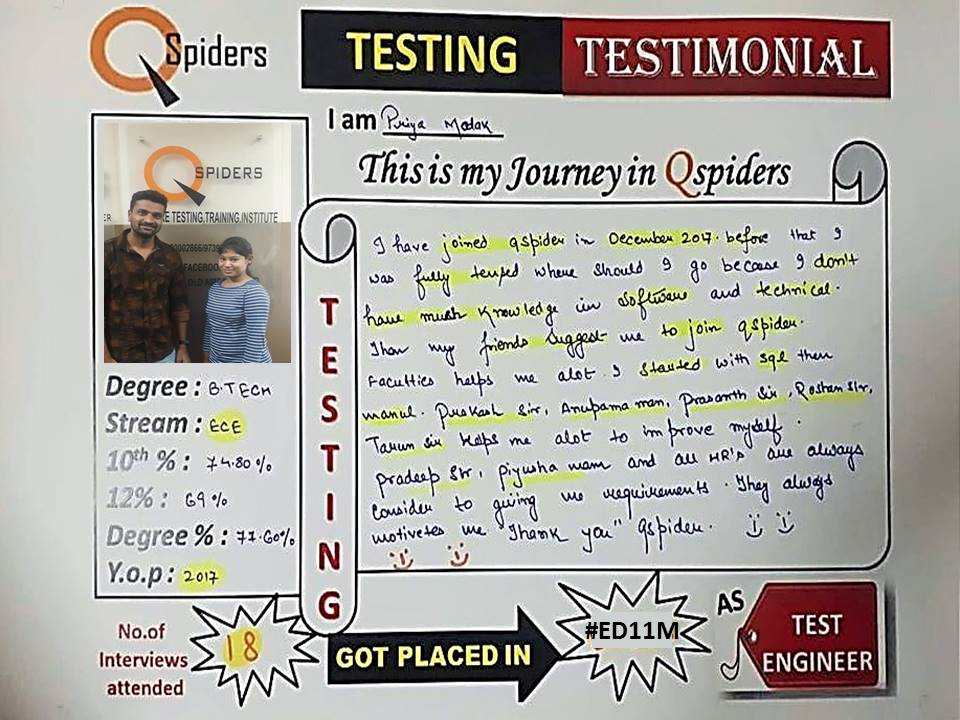 QSpiders
TESTING TESTIMONIAL
I am Priya Modak
This is my Journey in Qspiders
QSPIDERS
RE TESTING,TRAINING,INSTITUTE
00002866/9739
FACEBOOK
OLD
Degree : B.TECH
Stream : ECE
10th % : 74.80%
12% : 69%
Degree % : 77.60%
Y.o.p : 2017
TESTING
I have joined qspider in December 2017. before that I
was fully tenped where should I go because I don't
have much knowledge in software and technical.
Then my friends suggest me to join qspider.
Faculties helps me alot. I started with sql then
manul. Prakash sir, Anupama mam, Prasanth sir, Roshan sir,
Tarun sir helps me alot to improve myself.
Pradeep sir, piyusha mam and all HR's are always
consider to giving me requirements. They always
motivetes me "Thank you" qspider.
No.of
Interviews
attended
18
GOT PLACED IN
#ED11M
AS
TEST
ENGINEER